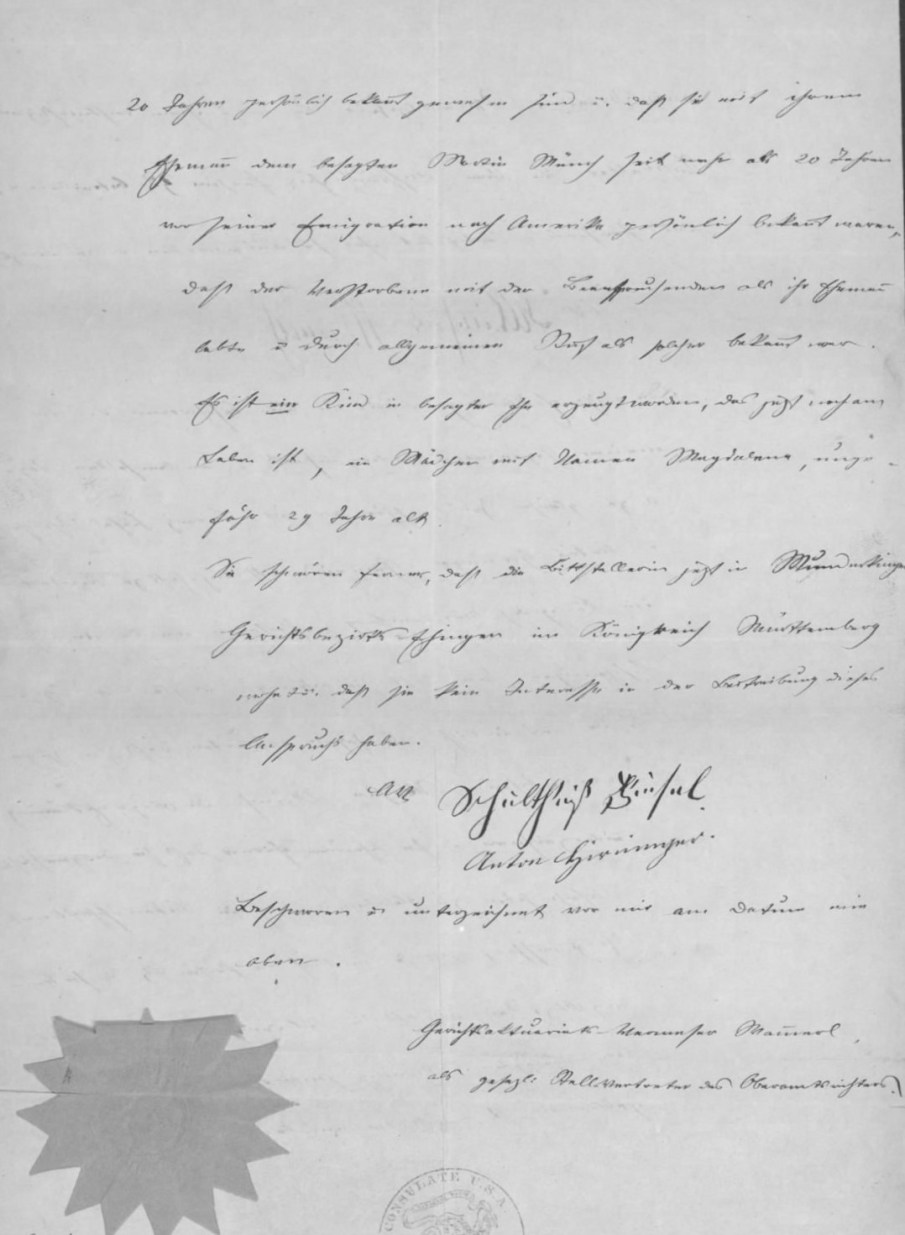 20 Jahren persönlich bekannt gewesen sind u. daß sie mit ihrem
Ehemann dem besagten Martin Münch seit mehr als 20 Jahren
vor seiner Emigration nach Amerika persönlich bekannt waren,
daß der Verstorbene mit der Beanspruchenden als ihr Ehemann
lebte u durch allgemeinen Ruf als solcher bekannt war.
Es ist ein Kind in besagter Ehe erzeugt worden, das jezt noch am
Leben ist, ein Mädchen mit Namen Magdalena, unge-
fähr 29 Jahre alt.
Sie schwören ferner, daß die Bittstellerin jezt in Munderkingen
Gerichtsbezirks Ehingen im Königreich Württemberg
wohnt u. daß sie kein Interesse in der Betreibung dieses
Anspruchs haben.
Schultheiß
Anton
Beschworen u unterzeichnet vor mir am Datum wie
oben.
Gerichtsaktuariats Verweser
als gesezl. Stellvertreter des Oberamtsrichters.
CONSULATE U.S.A